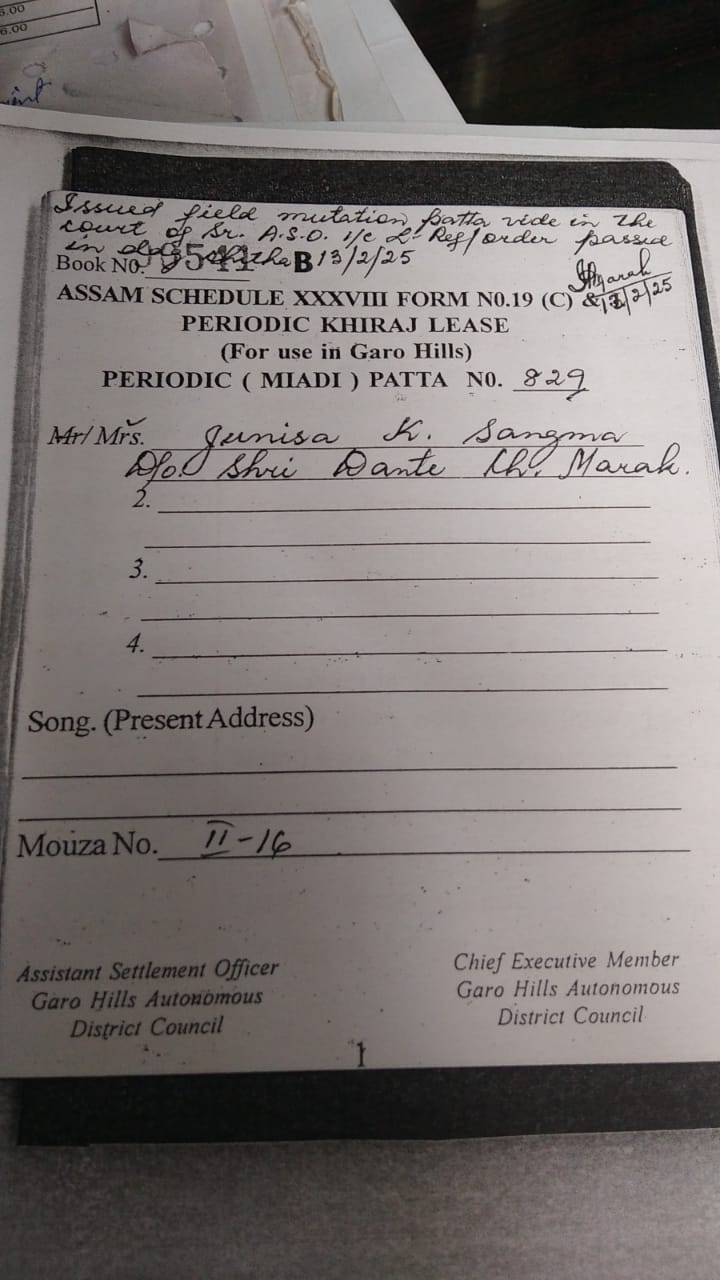 5.00
6.00
Issued field mutation patta vide in the
court of Sr. A.S.O. i/c L. Ref/order passed
in
Book N0. B 13/2/25
13/2/25
ASSAM SCHEDULE XXXVIII FORM N0.19 (C) &
PERIODIC KHIRAJ LEASE
(For use in Garo Hills)
PERIODIC ( MIADI ) PATTA N0. 829
Mr/ Mrs. Junisa K. Sangma
D/o. Shri Dante Ch. Marak.
2.
3.
4.
Song. (Present Address)
Mouza No. II-16
Assistant Settlement Officer
Garo Hills Autonomous
District Council
Chief Executive Member
Garo Hills Autonomous
District Council
1